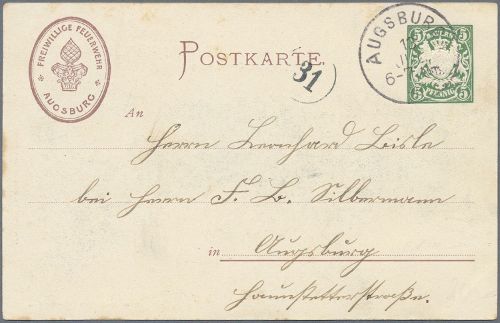 FREIWILLIGE FEUERWEHR
AUGSBURG
POSTKARTE.
31
AUGSBURG
BAYERN
5 5
5 5
PFENNIG
An
Herrn Leonhard Bisle
bei Herrn F. B. Silbermann
in Augsburg
Haunstetterstraße.